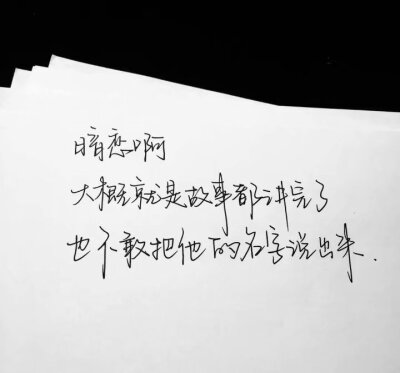 暗恋啊
大概就是故事都讲完了
也不敢把他的名字说出来.